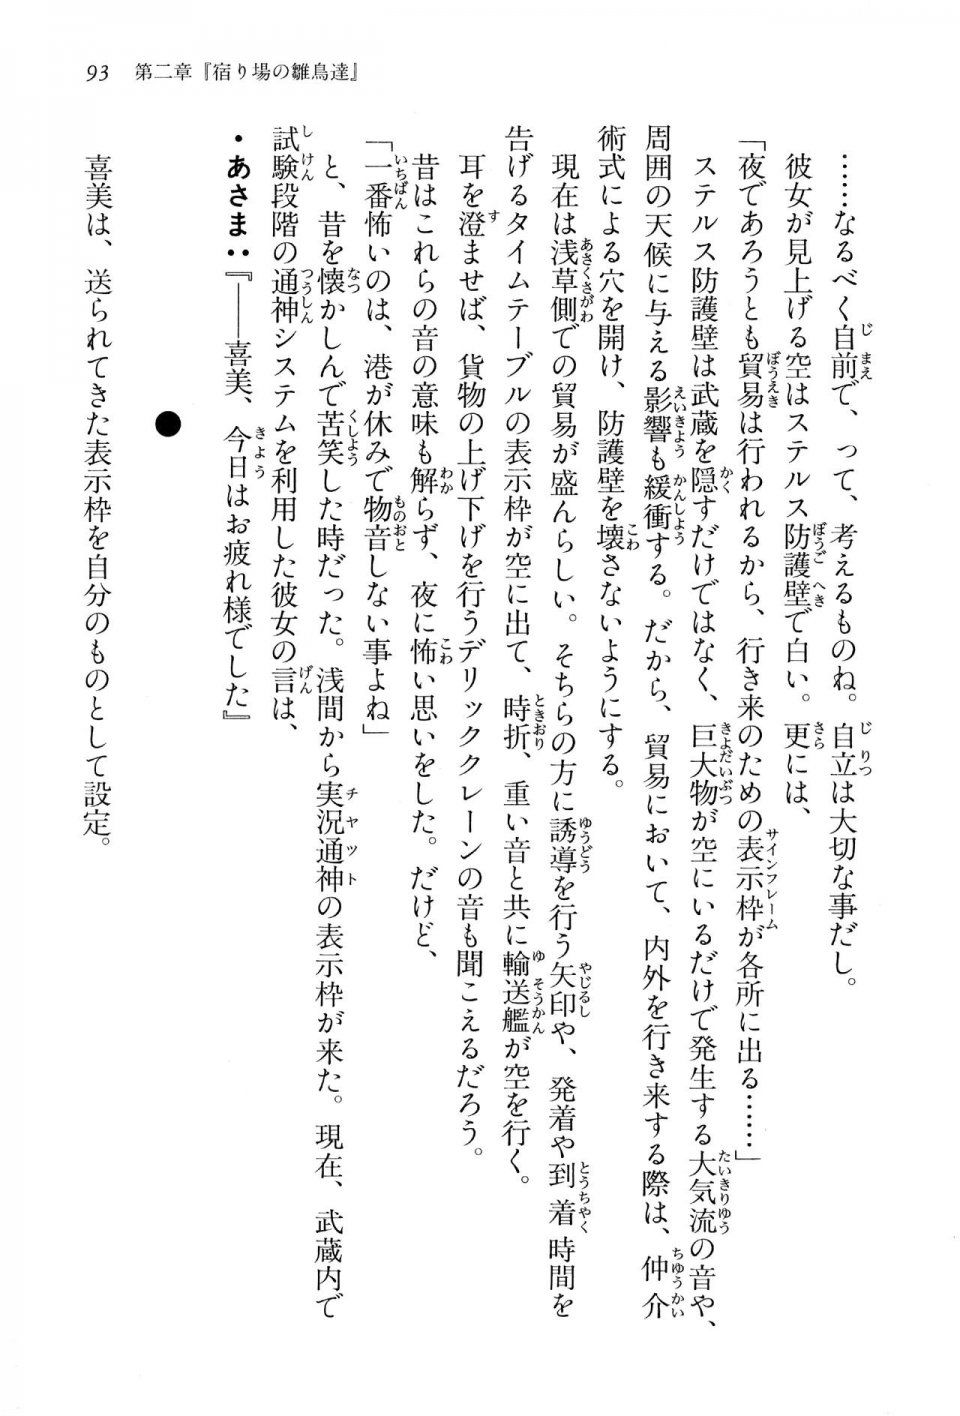 93　第二章『宿り場の雛鳥達』
……なるべく自前で、って、考えるものね。自立は大切な事だし。
彼女が見上げる空はステルス防護壁で白い。更には、
「夜であろうとも貿易は行われるから、行き来のための表示枠が各所に出る……」
ステルス防護壁は武蔵を隠すだけではなく、巨大物が空にいるだけで発生する大気流の音や、
周囲の天候に与える影響も緩衝する。だから、貿易において、内外を行き来する際は、仲介
術式による穴を開け、防護壁を壊さないようにする。
現在は浅草側での貿易が盛んらしい。そちらの方に誘導を行う矢印や、発着や到着時間を
告げるタイムテーブルの表示枠が空に出て、時折、重い音と共に輸送艦が空を行く。
耳を澄ませば、貨物の上げ下げを行うデリッククレーンの音も聞こえるだろう。
昔はこれらの音の意味も解らず、夜に怖い思いをした。だけど、
「一番怖いのは、港が休みで物音しない事よね」
と、昔を懐かしんで苦笑した時だった。浅間から実況通神の表示枠が来た。現在、武蔵内で
試験段階の通神システムを利用した彼女の言は、
・あさま：『――喜美、今日はお疲れ様でした』
●
喜美は、送られてきた表示枠を自分のものとして設定。